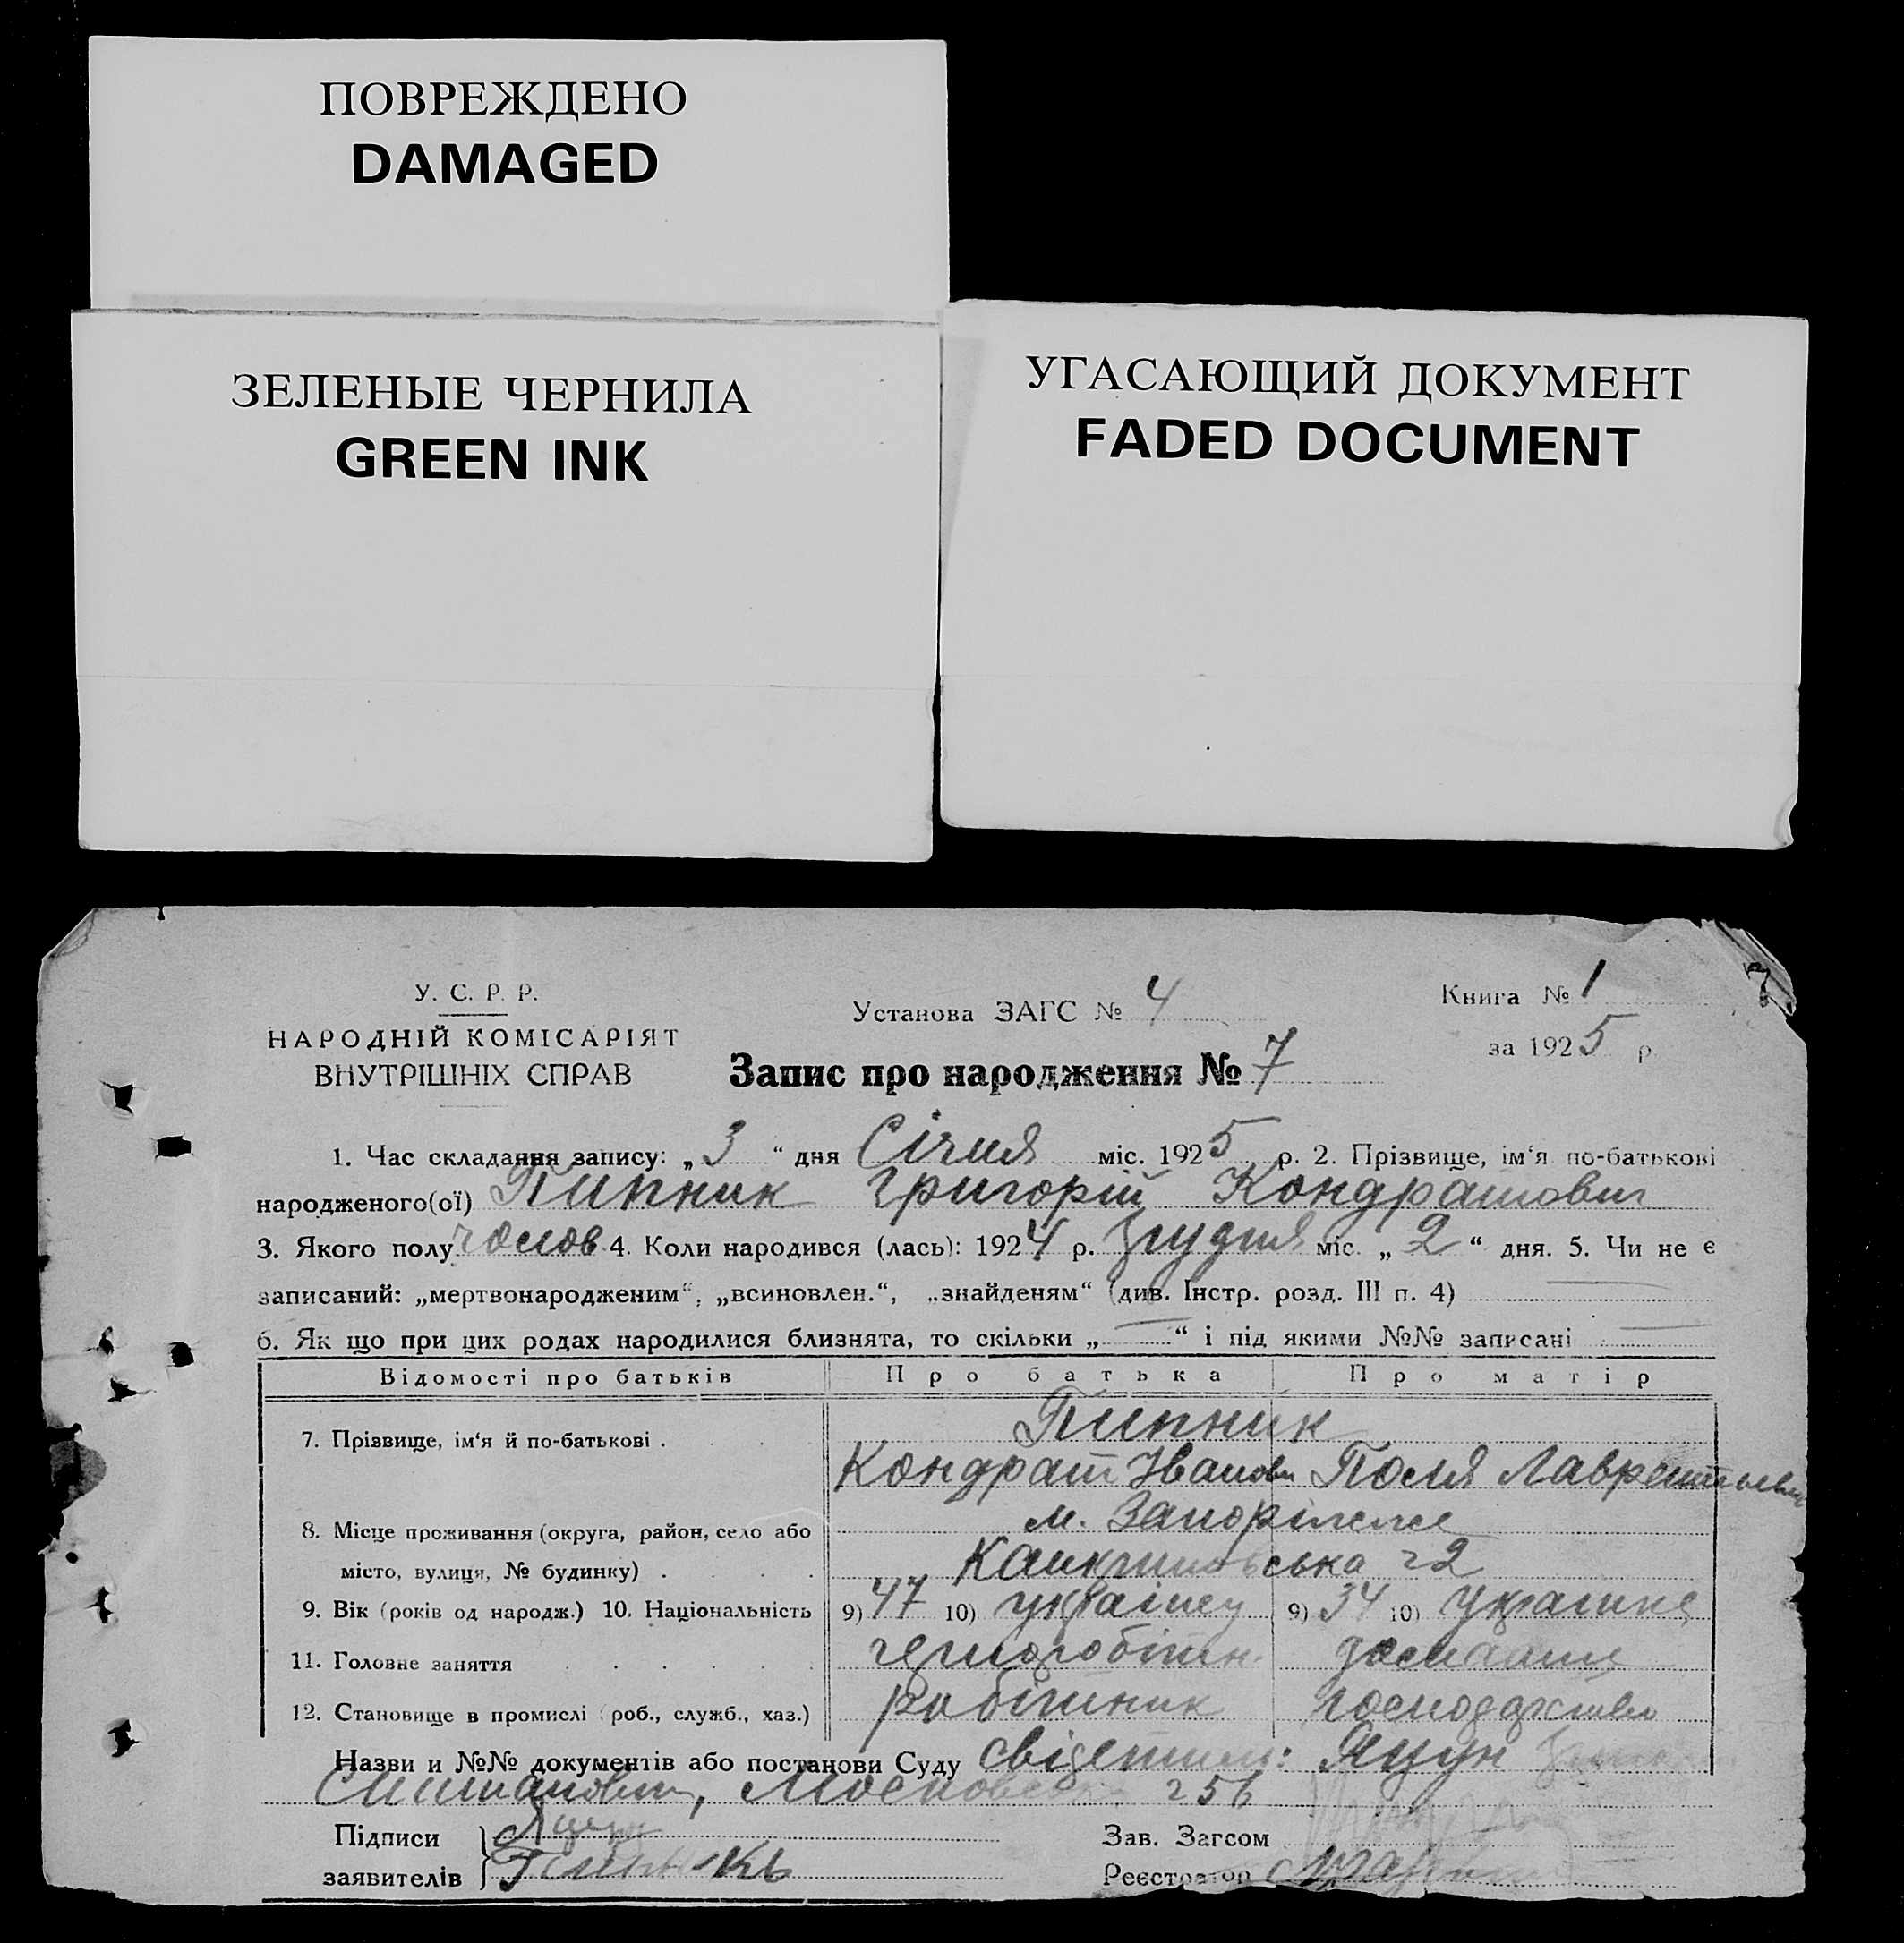 ПОВРЕЖДЕНО
DAMAGED
ЗЕЛЕНЫЕ ЧЕРНИЛА
GREEN INK
УГАСАЮЩИЙ ДОКУМЕНТ
FADED DOCUMENT
7
У. С. Р. Р.
НАРОДНІЙ КОМІСАРІЯТ
ВНУТРІШНІХ СПРАВ
Установа ЗАГС № 4
Книга № 1
за 1925 р
Запис про народження № 7
1. Час складання запису: „3“ дня Січня міс. 1925 р. 2. Прізвище, ім‘я по-батькові
народженого(ої) Пипник Григорій Кондратович
3. Якого полу чолов. 4. Коли народився (лась): 1924 р. Грудня міс. „2“ дня. 5. Чи не є
записаний: „мертвонародженим“, „всиновлен.“, „знайденям“ (див. Інстр. розд. III п. 4)
6. Як що при цих родах народилися близнята, то скільки „ “ і під якими №№ записані
Відомості про батьків Про батька Про матір
7. Прізвище, ім‘я й по-батькові . Пипник
Кондрат Іванов Поля Лаврентьевн
8. Місце проживання (округа, район, село або м. Запоріжже
місто, вулиця, № будинку) . ська 22
9. Вік (років од народж.) 10. Національність 9) 47 10) українец 9) 34 10) українка
11. Головне заняття чернороботн. домашнє
12. Становище в промислі (роб., служб., хаз.) робітник господарство
Назви и №№ документів або постанови Суду свідетели: Яцун
Московська 256
Підписи
заявителів
Яцун
Зав. Загсом
Реєстратор